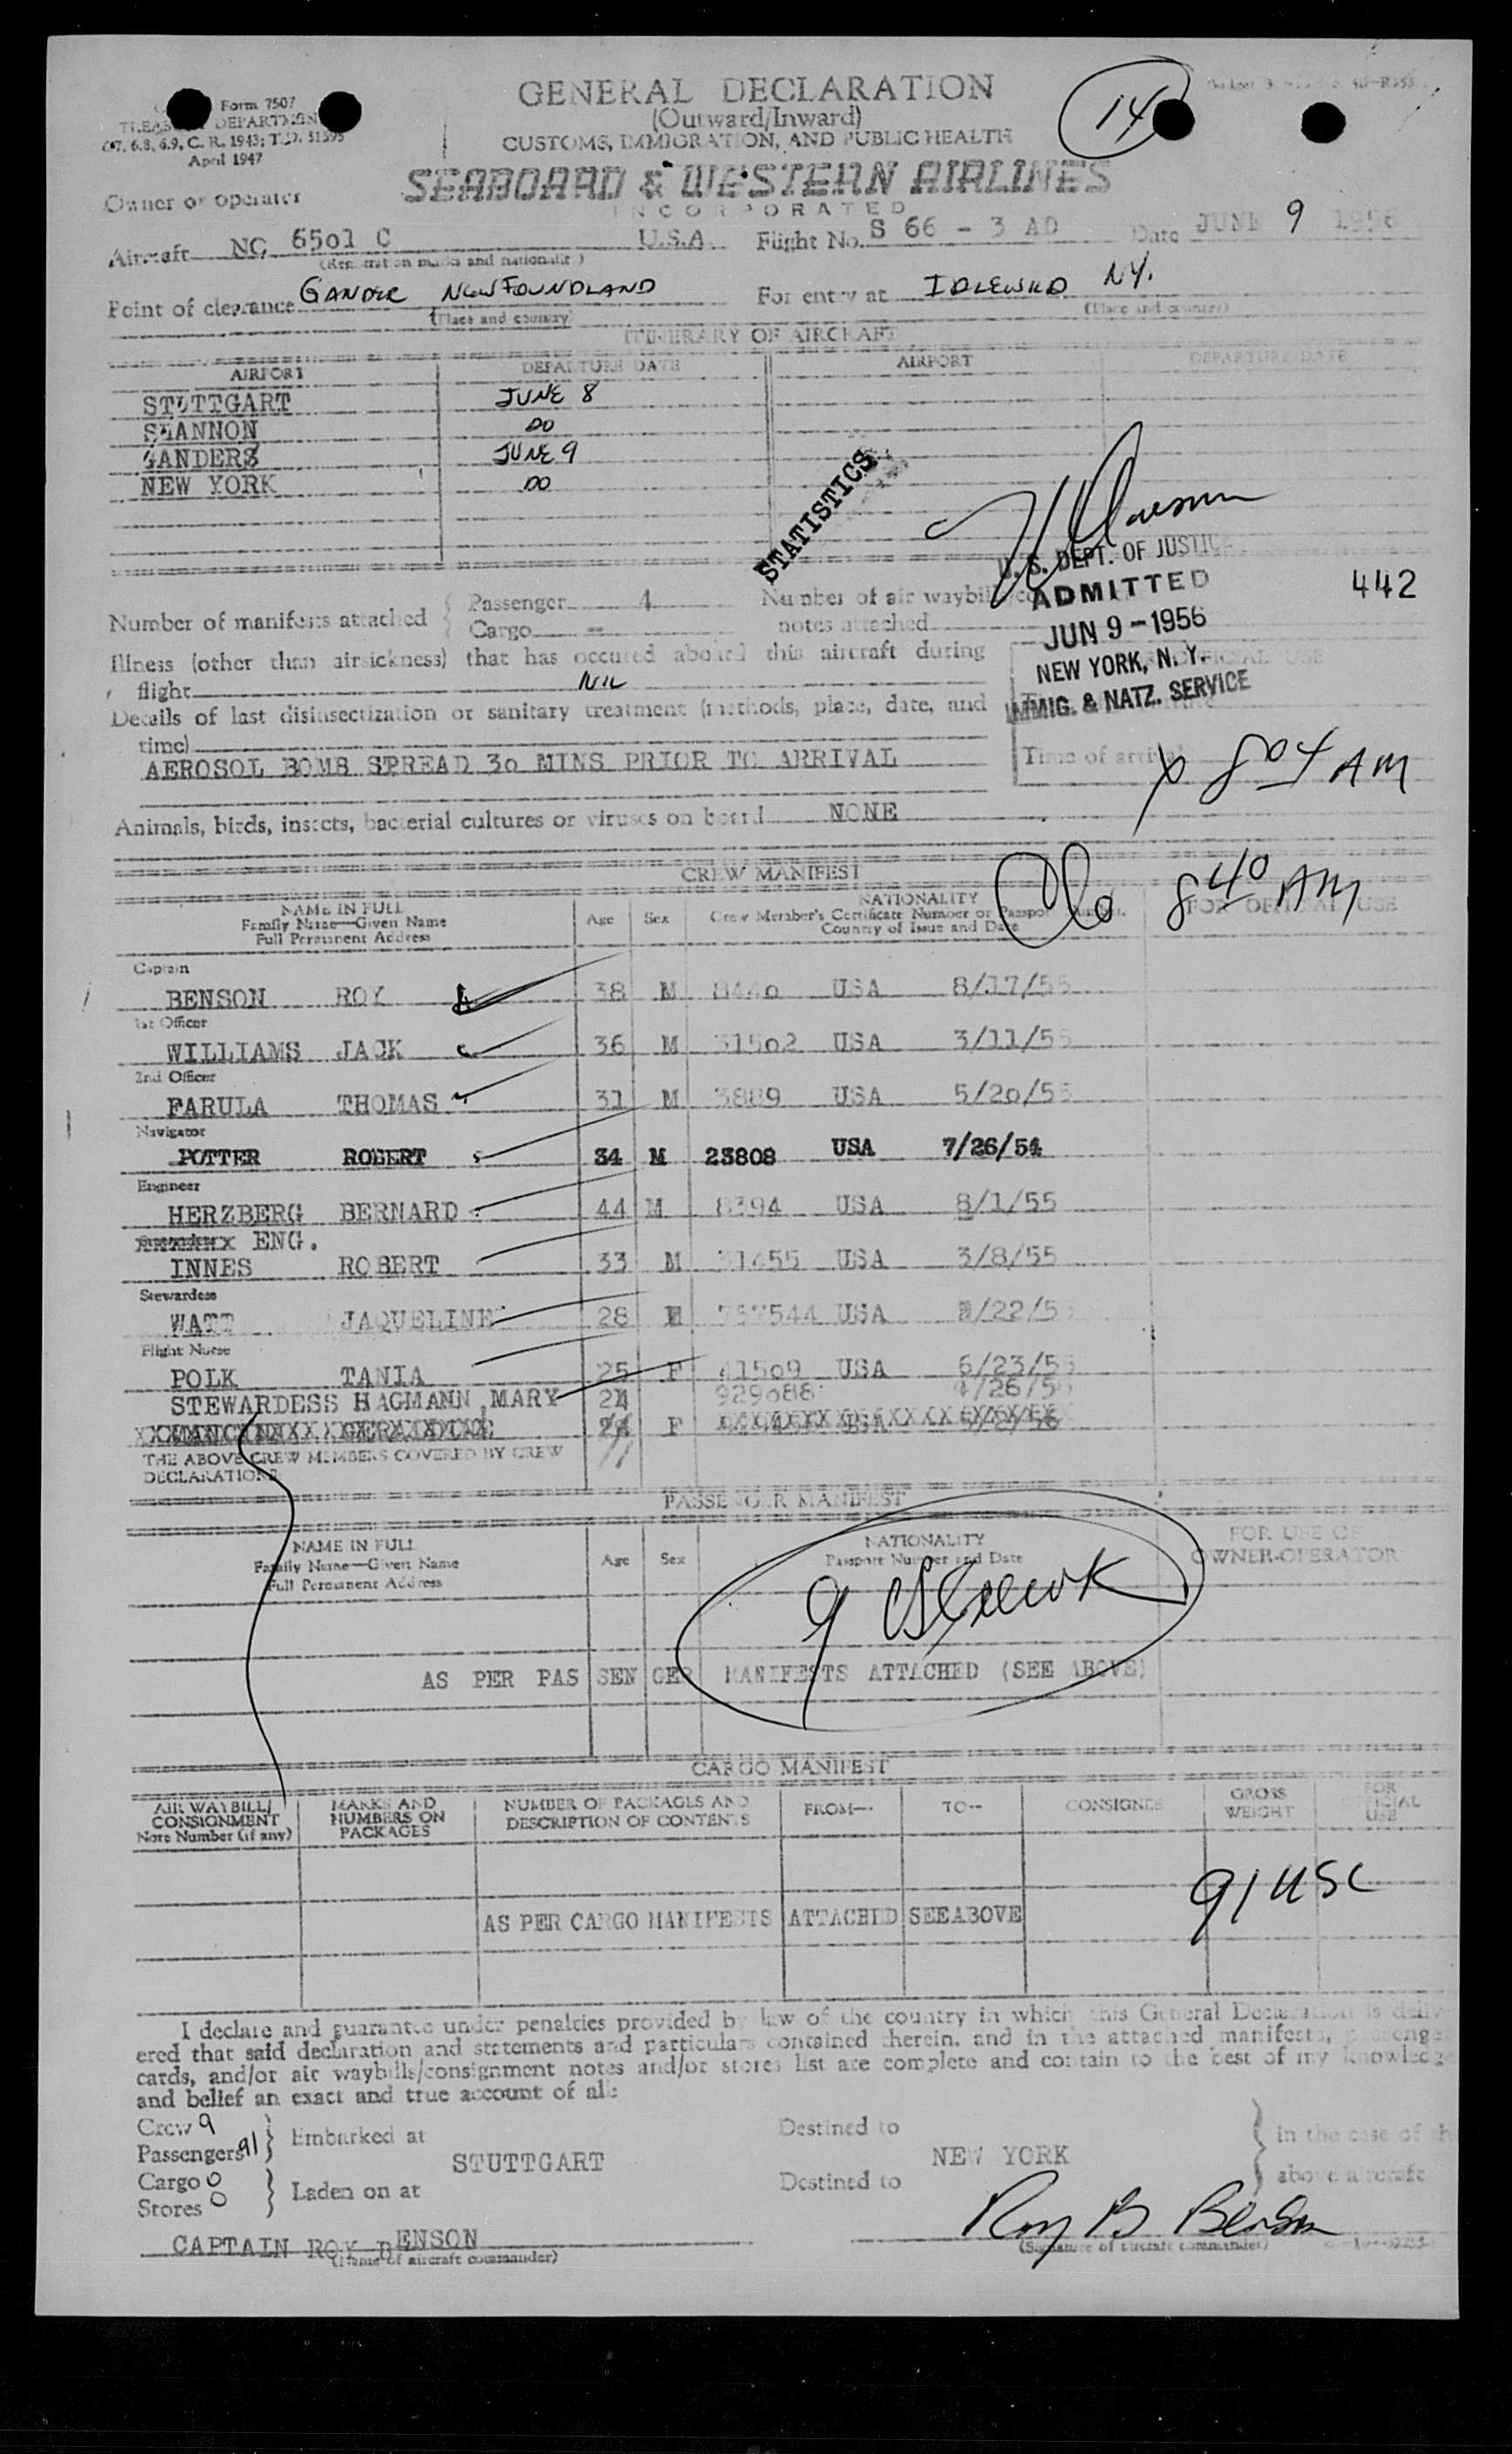 Form 7507
TREASURY DEPARTMENT
4.7, 6.8, 6.9, C. R. 1943; T.D. 51395
April 1947
GENERAL DECLARATION
(Outward/Inward)
CUSTOMS, IMMIGRATION, AND PUBLIC HEALTH
14
SEABOARD & WESTERN AIRLINES
INCORPORATED
Owner or operator
Aircraft NC 6501 C U.S.A. Flight No. S 66 - 3 AD Date JUNE 9 1956
(Registration marks and nationality)
Point of clearance GANDER NEWFOUNDLAND For entry at IDLEWILD NY.
(Place and country) (Place and country)
ITINERARY OF AIRCRAFT
AIRPORT DEPARTURE DATE AIRPORT DEPARTURE DATE
STUTTGART JUNE 8
SHANNON DO
GANDERS JUNE 9
NEW YORK DO
STATISTICS
U. S. DEPT. OF JUSTICE
ADMITTED
JUN 9 - 1956
NEW YORK, N. Y.
IMMIG. & NATZ. SERVICE
442
Number of manifests attached { Passenger 4
Cargo -
Number of air waybills/
notes attached
Illness (other than airsickness) that has occured aboard this aircraft during
flight NIL
Details of last disinsectization or sanitary treatment (methods, place, date, and
time)
AEROSOL BOMB SPREAD 30 MINS PRIOR TO ARRIVAL
Time of arrival 804 AM
Animals, birds, insects, bacterial cultures or viruses on board NONE
CREW MANIFEST
840 AM
NAME IN FULL
Family Name—Given Name
Full Permanent Address
Age Sex
NATIONALITY
Crew Member's Certificate Number or Passport Number,
Country of Issue and Date
FOR OFFICIAL USE
Captain
BENSON ROY 38 M 8440 USA 8/17/55
1st Officer
WILLIAMS JACK 36 M 31502 USA 3/11/55
2nd Officer
FARULA THOMAS 31 M 3889 USA 5/20/55
Navigator
POTTER ROBERT 34 M 23808 USA 7/26/54
Engineer
HERZBERG BERNARD 44 M 8394 USA 8/1/55
ENG.
INNES ROBERT 33 M 31455 USA 3/8/55
Stewardess
WATT JAQUELINE 28 757544 USA /22/5
Flight Nurse
POLK TANIA 25 F 41509 USA 6/23/55
STEWARDESS HAGMANN, MARY 24 929088 4/26/56
F
THE ABOVE CREW MEMBERS COVERED BY CREW
DECLARATIONS
PASSENGER MANIFEST
NAME IN FULL
Family Name—Given Name
Full Permanent Address
Age Sex
NATIONALITY
Passport Number and Date
FOR USE OF
OWNER-OPERATOR
9
AS PER PASSENGER MANIFESTS ATTACHED (SEE ABOVE)
CARGO MANIFEST
AIR WAYBILL/
CONSIGNMENT
Note Number (if any)
MARKS AND
NUMBERS ON
PACKAGES
NUMBER OF PACKAGES AND
DESCRIPTION OF CONTENTS
FROM— TO— CONSIGNEE
GROSS
WEIGHT
FOR
OFFICIAL
USE
91 USC
AS PER CARGO MANIFESTS ATTACHED SEE ABOVE
I declare and guarantee under penalties provided by law of the country in which this General Declaration is deliv-
ered that said declaration and statements and particulars contained therein, and in the attached manifests, passenger
cards, and/or air waybills/consignment notes and/or stores list are complete and contain to the best of my knowledge
and belief an exact and true account of all:
Crew 9
Passengers 91 } Embarked at STUTTGART Destined to NEW YORK } in the case of the
Cargo 0
Stores 0 } Laden on at Destined to above aircraft
CAPTAIN ROY BENSON Roy B Benson
(Name of aircraft commander) (Signature of aircraft commander)